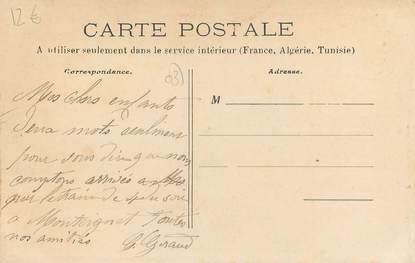 12 €
CARTE POSTALE
A utiliser seulement dans le service intérieur (France, Algérie, Tunisie)
Correspondance.
Adresse.
93
M
Mes chers enfants
Deux mots seulement
pour vous dire que nous
comptons arriver
par le train de soir
a Toutes
nos amitiés
G. Giraud